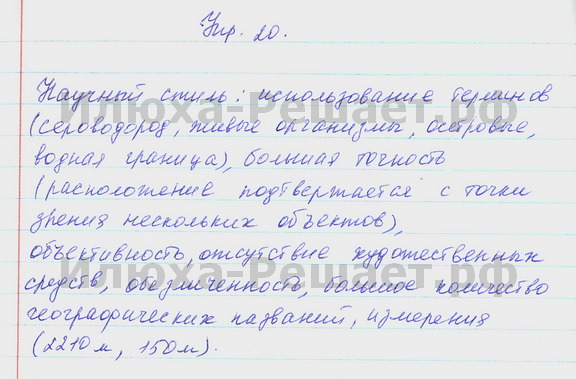 Упр. 20.
Научный стиль: использование терминов
(сероводород, живые организмы, островые,
водная граница), большая точность
(расположение подтвержается с точки
зрения нескольких объектов),
объективность, отсутствие художественных
средств, обезличенность, большое количество
географических названий, измерения
(2210 м, 150 м).
Илюха-Решает.рф
Илюха-Решает.рф